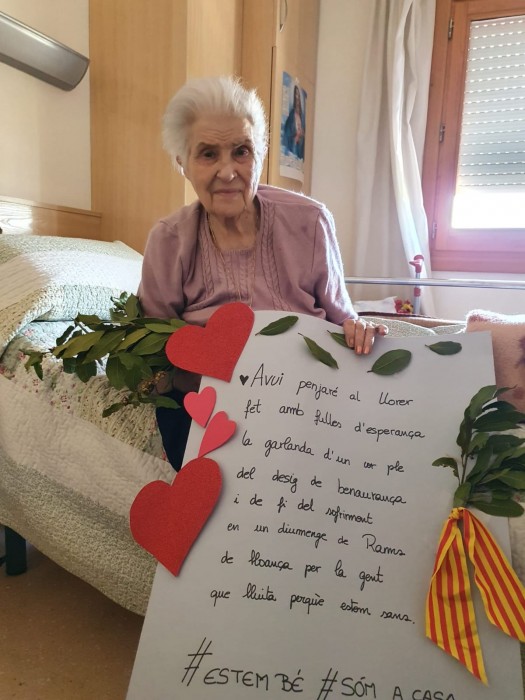 ♥Avui penjaré al llorer
fet amb fulles d'esperança
la garlanda d'un cor ple
del desig de benaurança
i de fi del sofriment
en un diumenge de Rams
de lloança per la gent
que lluita perquè estem sans.
#ESTEM BÉ #SÓM A CASA